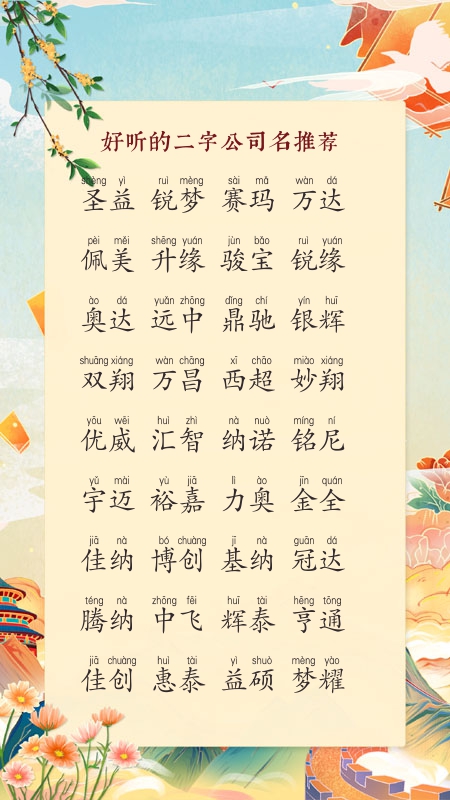 好听的二字公司名推荐
shèng yì ruì mèng sài mǎ wàn dá
圣益 锐梦 赛玛 万达
pèi měi shēng yuán jùn bǎo ruì yuán
佩美 升缘 骏宝 锐缘
ào dá yuǎn zhōng dǐng chí yín huī
奥达 远中 鼎驰 银辉
shuāng xiáng wàn chāng xī chāo miào xiáng
双翔 万昌 西超 妙翔
yōu wēi huì zhì nà nuò míng ní
优威 汇智 纳诺 铭尼
yǔ mài yù jiā lì ào jīn quán
宇迈 裕嘉 力奥 金全
jiā nà bó chuàng jī nà guān dá
佳纳 博创 基纳 冠达
téng nà zhōng fēi huī tài hēng tōng
腾纳 中飞 辉泰 亨通
jiā chuàng huì tài yì shuò mèng yào
佳创 惠泰 益硕 梦耀